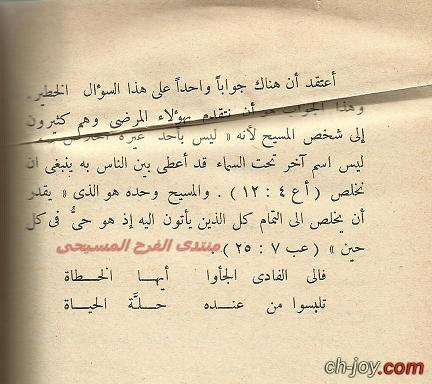 أعتقد أن هناك جواباً واحداً على هذا السؤال الخطير.
وهذا الجواب هو أن نتقدم بهؤلاء المرضى وهم كثيرون
إلى شخص المسيح لأنه « ليس بأحد غيره
ليس اسم آخر تحت السماء قد أعطى بين الناس به ينبغى أن
نخلص ( أع ٤ : ١٢ ) . والمسيح وحده هو الذى « يقدر
أن يخلص الى التمام كل الذين يأتون اليه إذ هو حىُّ فى كل
حين » ( عب ٧ : ٢٥ ) .
منتدى الفرح المسيحى
فالى الفادى الجأوا أيها الخطاة
تلبسوا من عنده حلَّة الحياة
ch-joy.com